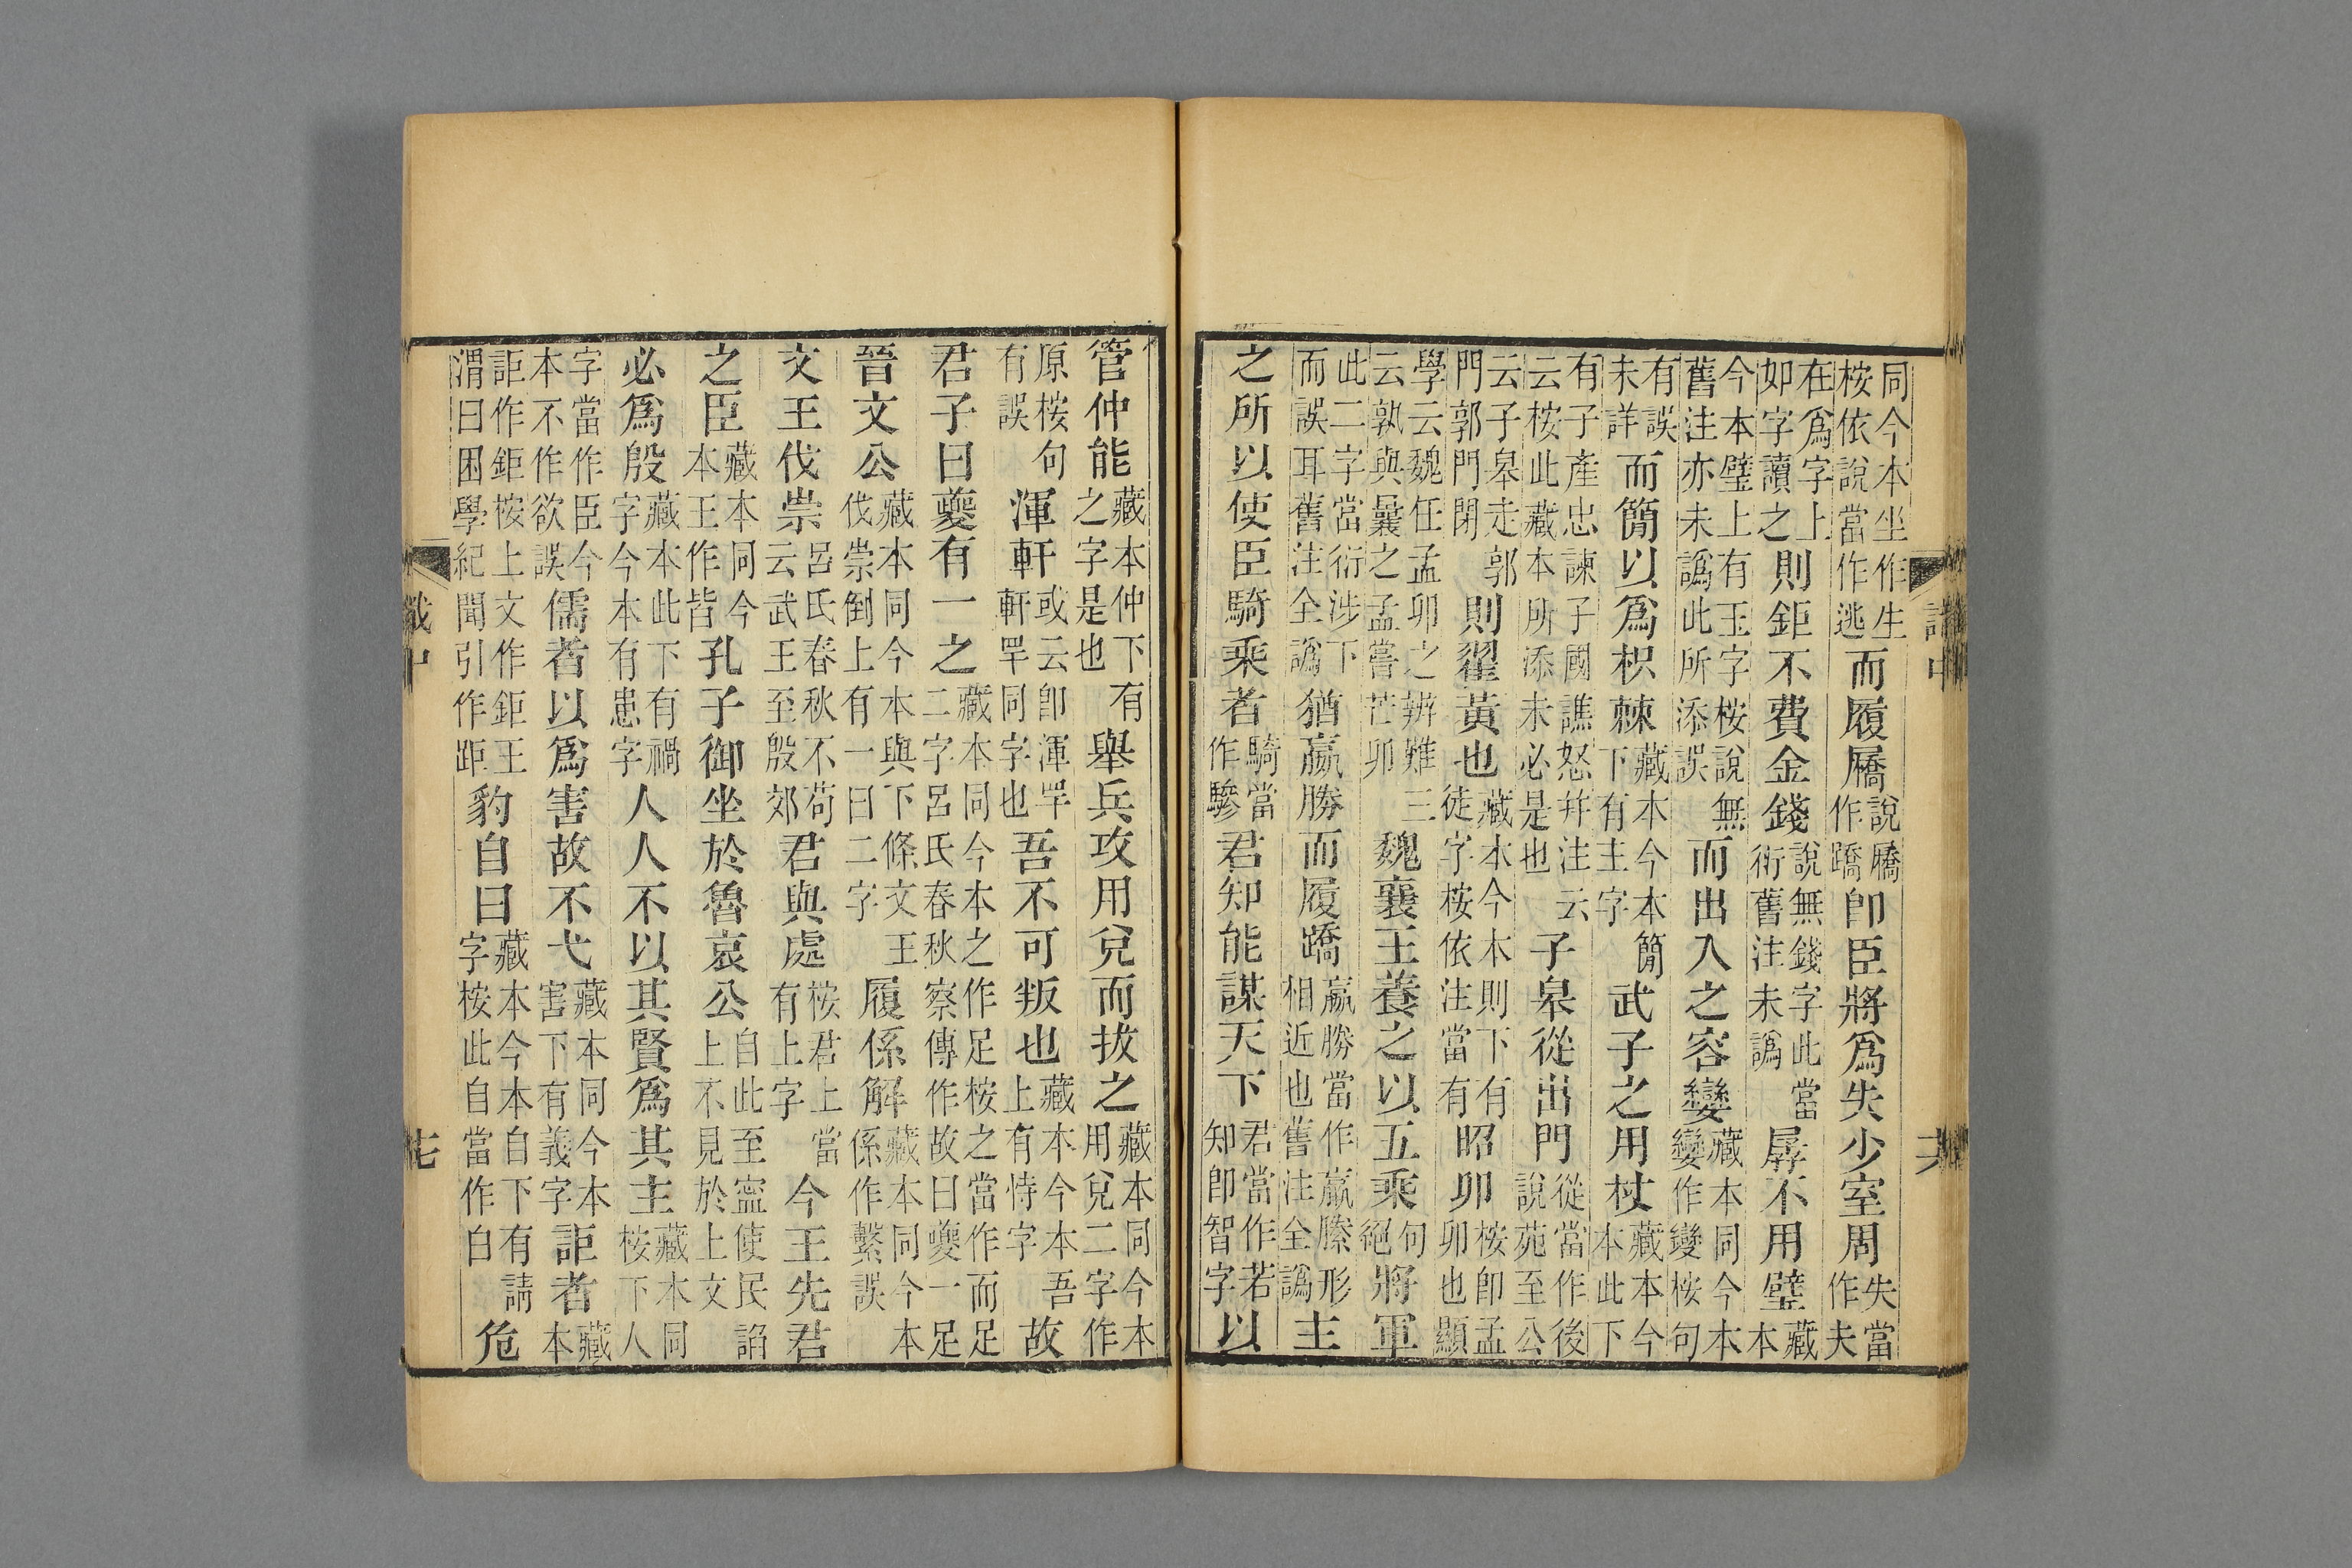 同今本坐作生桉依說當作逃而履屩說屩作蹻卽臣將爲失少室周失當作夫
在爲字上如字讀之則鉅不費金錢說無錢字此當衍舊注未譌孱不用璧藏本
今本璧上有玉字桉說無舊注亦未譌此所添誤而出入之容變藏本同今本變作變桉句
有誤未詳而簡以爲枳棘藏本今本簡下有主字武子之用杖藏本今本此下
有子產忠諫子國譙怒幷注云云桉此藏本所添未必是也子皋從出門從當作後說苑至公
云子皋走郭門郭門閉則翟黃也藏本今本則下有徒字桉依注當有昭卯桉卽孟卯也顯
學云魏任孟卯之辨難三云孰與曩之孟嘗芒卯魏襄王養之以五乘句絕將軍
此二字當衍涉下而誤耳舊注全譌猶嬴勝而履蹻嬴勝當作嬴縢形相近也舊注全譌主
之所以使臣騎乘者騎當作驂君知能謀天下君當作若知卽智字以
管仲能藏本仲下有之字是也舉兵攻用兌而拔之藏本同今本用兌二字作
原桉句有誤渾軒或云卽渾罕軒罕同字也吾不可叛也藏本今本吾上有恃字故
君子曰夔有一之藏本同今本之作足桉之當作而足二字呂氏春秋察傳作故曰夔一足
晉文公藏本同今本與下條文王伐崇倒上有一曰二字履係解藏本同今本係作繫誤
文王伐崇呂氏春秋不苟云武王至殷郊君與處桉君上當有上字今王先君
之臣藏本同今本王作皆孔子御坐於魯哀公自此至寍使民諂上不見於上文
必爲殷藏本此下有禍字今本有患字人人不以其賢爲其主藏本同桉下人
字當作臣今本不作欲誤儒者以爲害故不弋藏本同今本害下有義字詎者藏本
詎作鉅桉上文作鉅王渭曰困學紀聞引作距豹自曰藏本今本自下有請字桉此自當作白危